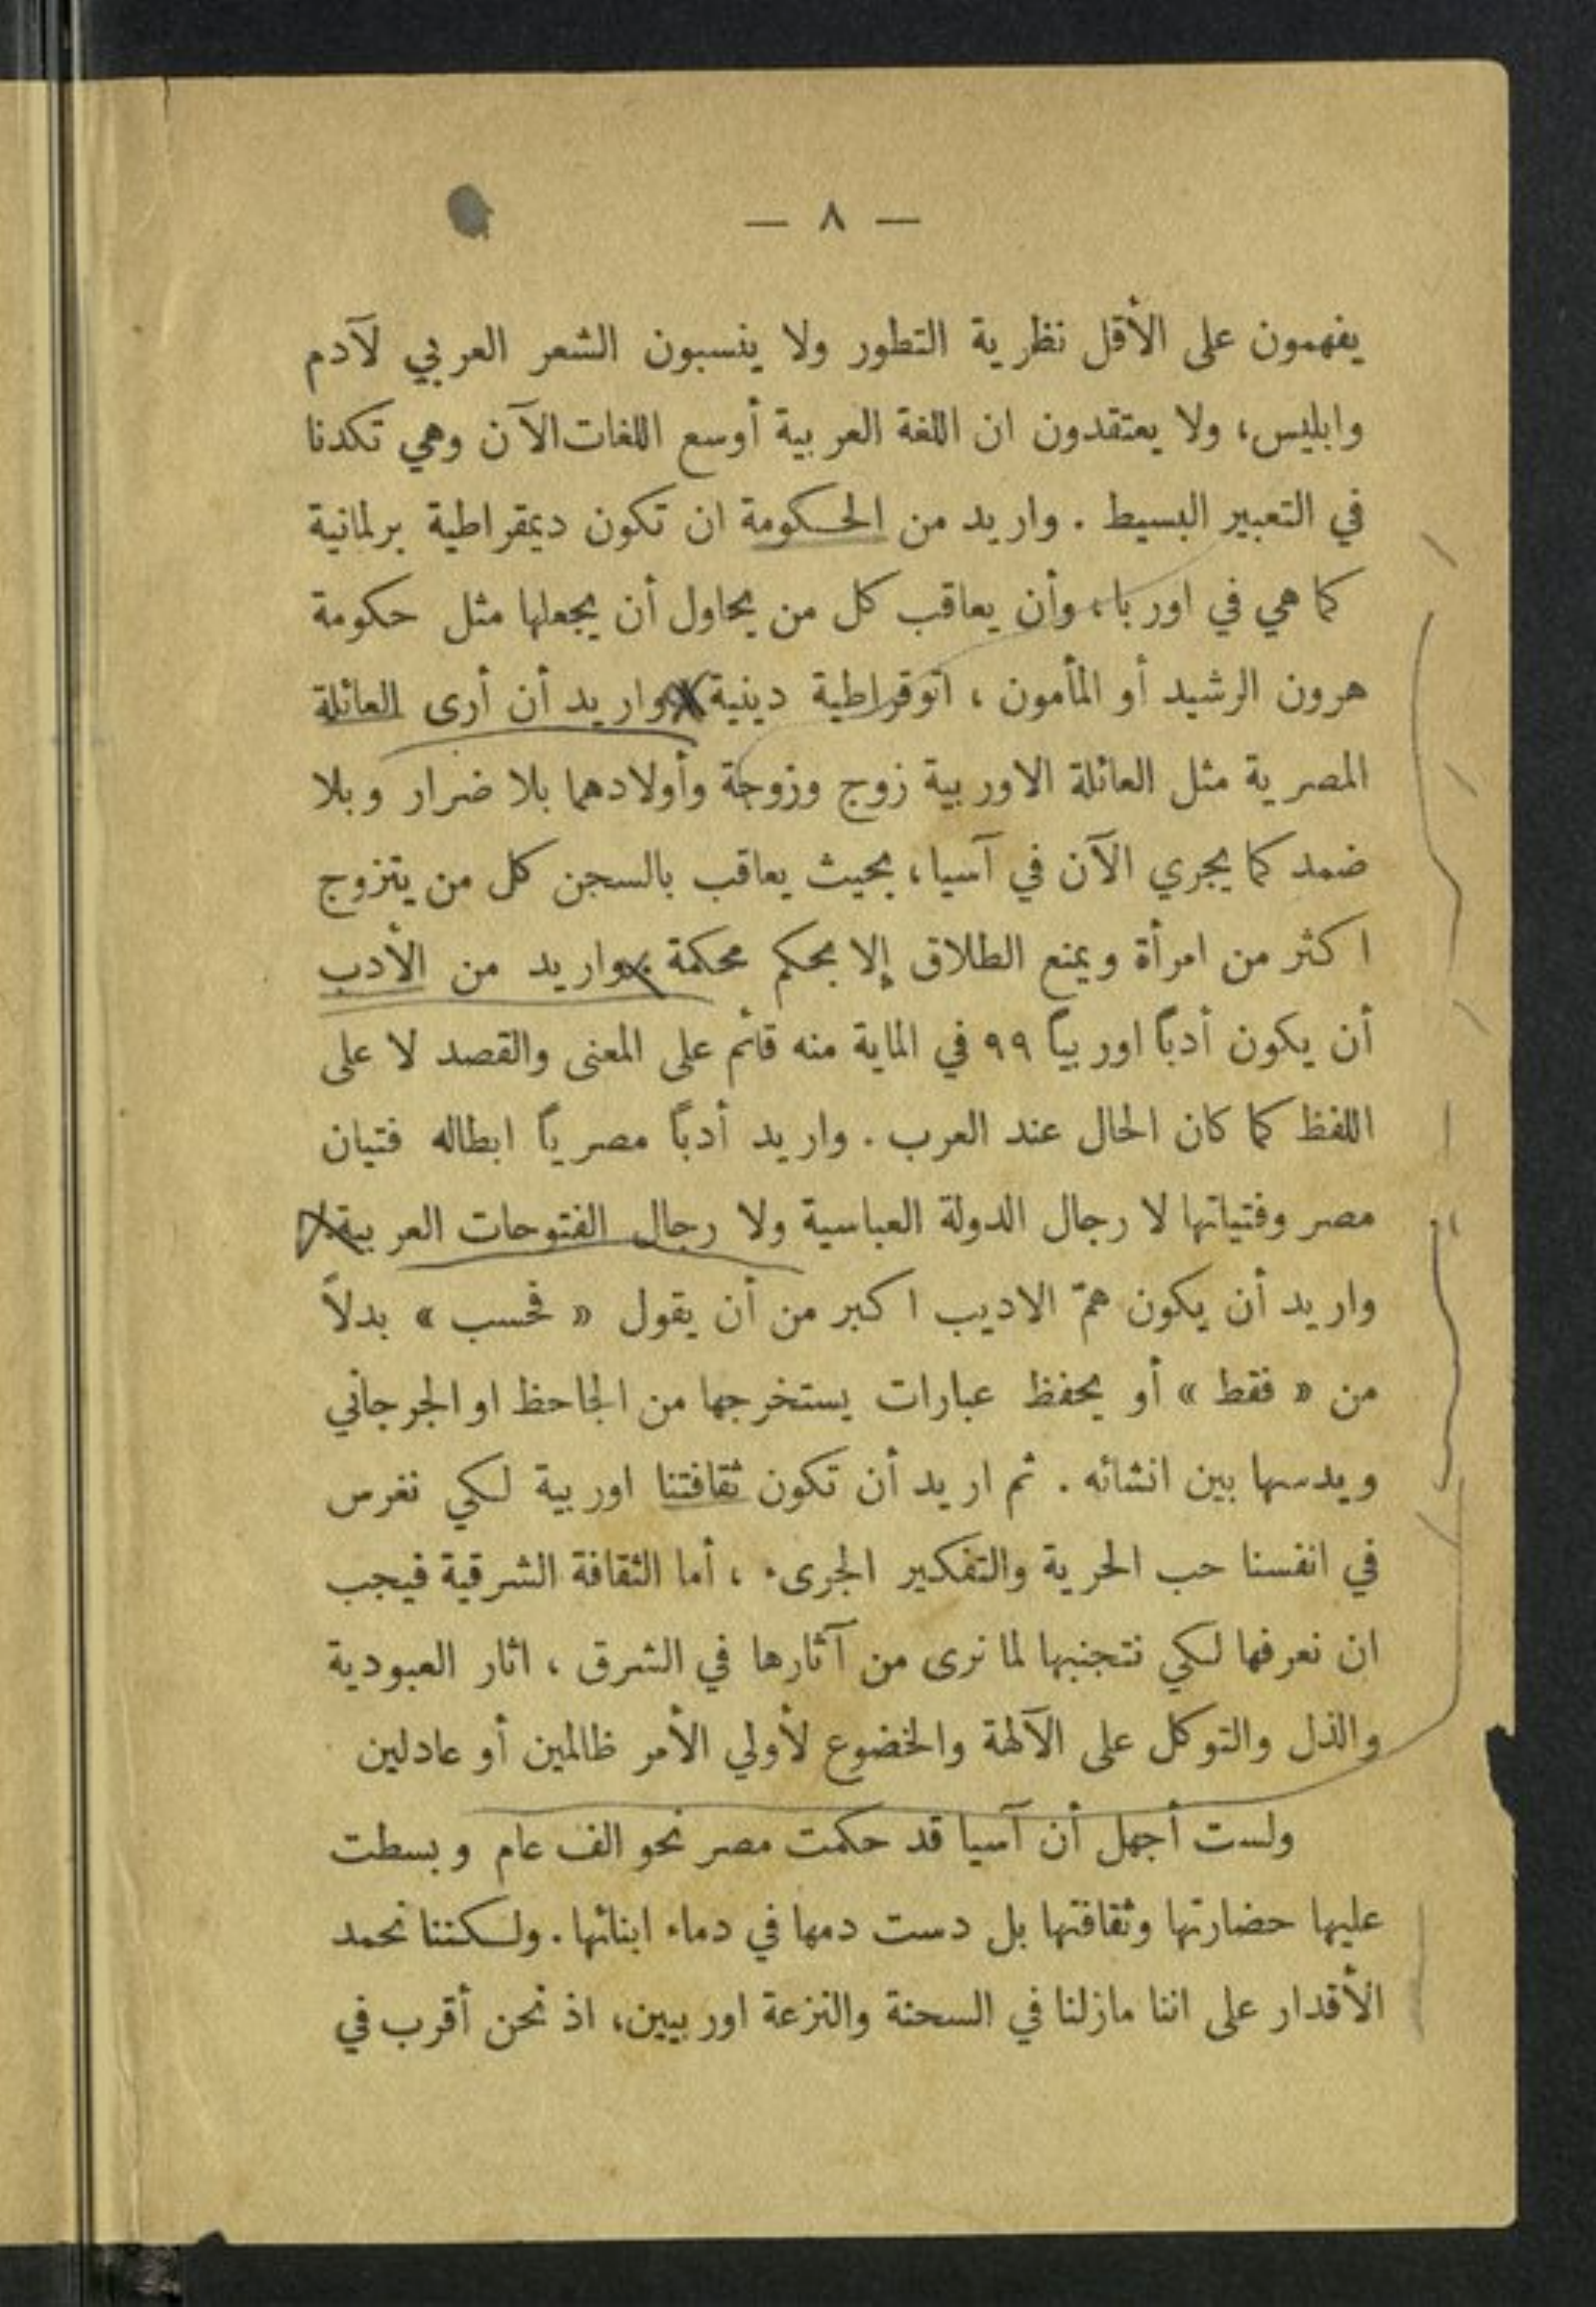 — ٨ —
يفهمون على الأقل نظرية التطور ولا ينسبون الشعر العربي لآدم
وابليس، ولا يعتقدون ان اللغة العربية أوسع اللغات الآن وهي تكدنا
في التعبير البسيط . واريد من الحكومة ان تكون ديمقراطية برلمانية
كما هي في اوربا، وأن يعاقب كل من يحاول أن يجعلها مثل حكومة
هرون الرشيد أو المأمون ، اتوقراطية دينية واريد أن أرى العائلة
المصرية مثل العائلة الاوربية زوج وزوجة وأولادهما بلا ضرار وبلا
ضمد كما يجري الآن في آسيا، بحيث يعاقب بالسجن كل من يتزوج
اكثر من امرأة ويمنع الطلاق إلا بحكم محكمة . واريد من الأدب
أن يكون أدباً اوربياً ٩٩ في الماية منه قائم على المعنى والقصد لا على
اللفظ كما كان الحال عند العرب . واريد أدباً مصرياً ابطاله فتيان
مصر وفتياتها لا رجال الدولة العباسية ولا رجال الفتوحات العربية
واريد أن يكون همّ الاديب اكبر من أن يقول « فحسب » بدلاً
من « فقط » أو يحفظ عبارات يستخرجها من الجاحظ او الجرجاني
ويدسها بين انشائه . ثم اريد أن تكون ثقافتنا اوربية لكي نغرس
في انفسنا حب الحرية والتفكير الجرىء ، أما الثقافة الشرقية فيجب
ان نعرفها لكي نتجنبها لما نرى من آثارها في الشرق ، اثار العبودية
والذل والتوكل على الآلهة والخضوع لأولي الأمر ظالمين أو عادلين
ولست أجهل أن آسيا قد حكمت مصر نحو الف عام وبسطت
عليها حضارتها وثقافتها بل دست دمها في دماء ابنائها. ولكننا نحمد
الأقدار على اننا مازلنا في السحنة والنزعة اوربيين، اذ نحن أقرب في